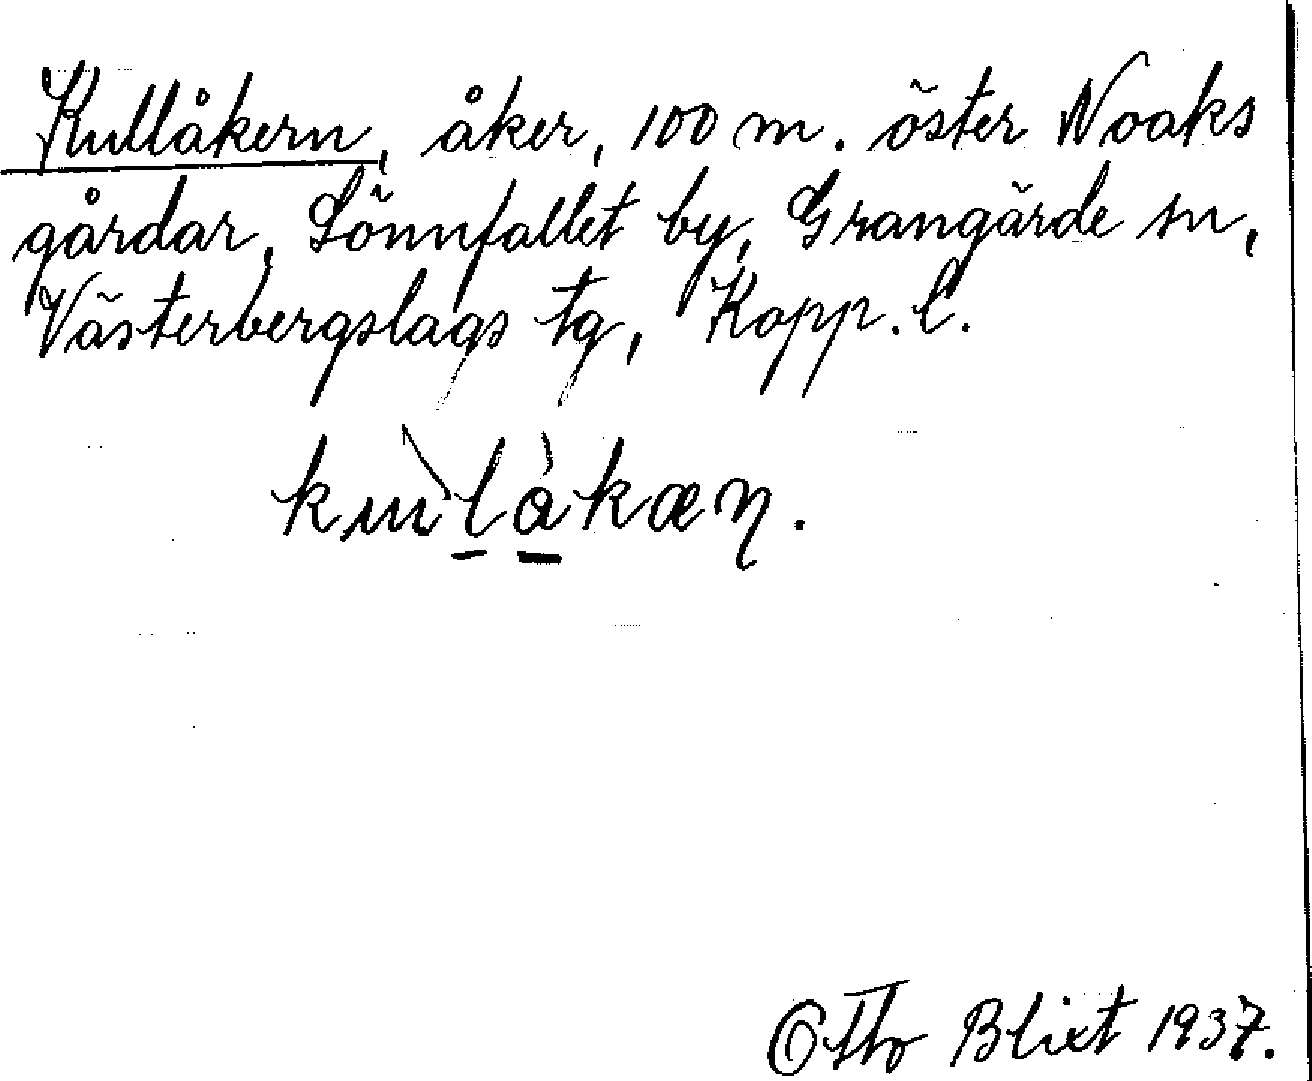 Kullåkern, åker, 100 m. öster Noaks
gårdar, Lönnfallet by, Grangärde sn,
Västerbergslags tg, Kopp. l.
Otto Blixt 1937.